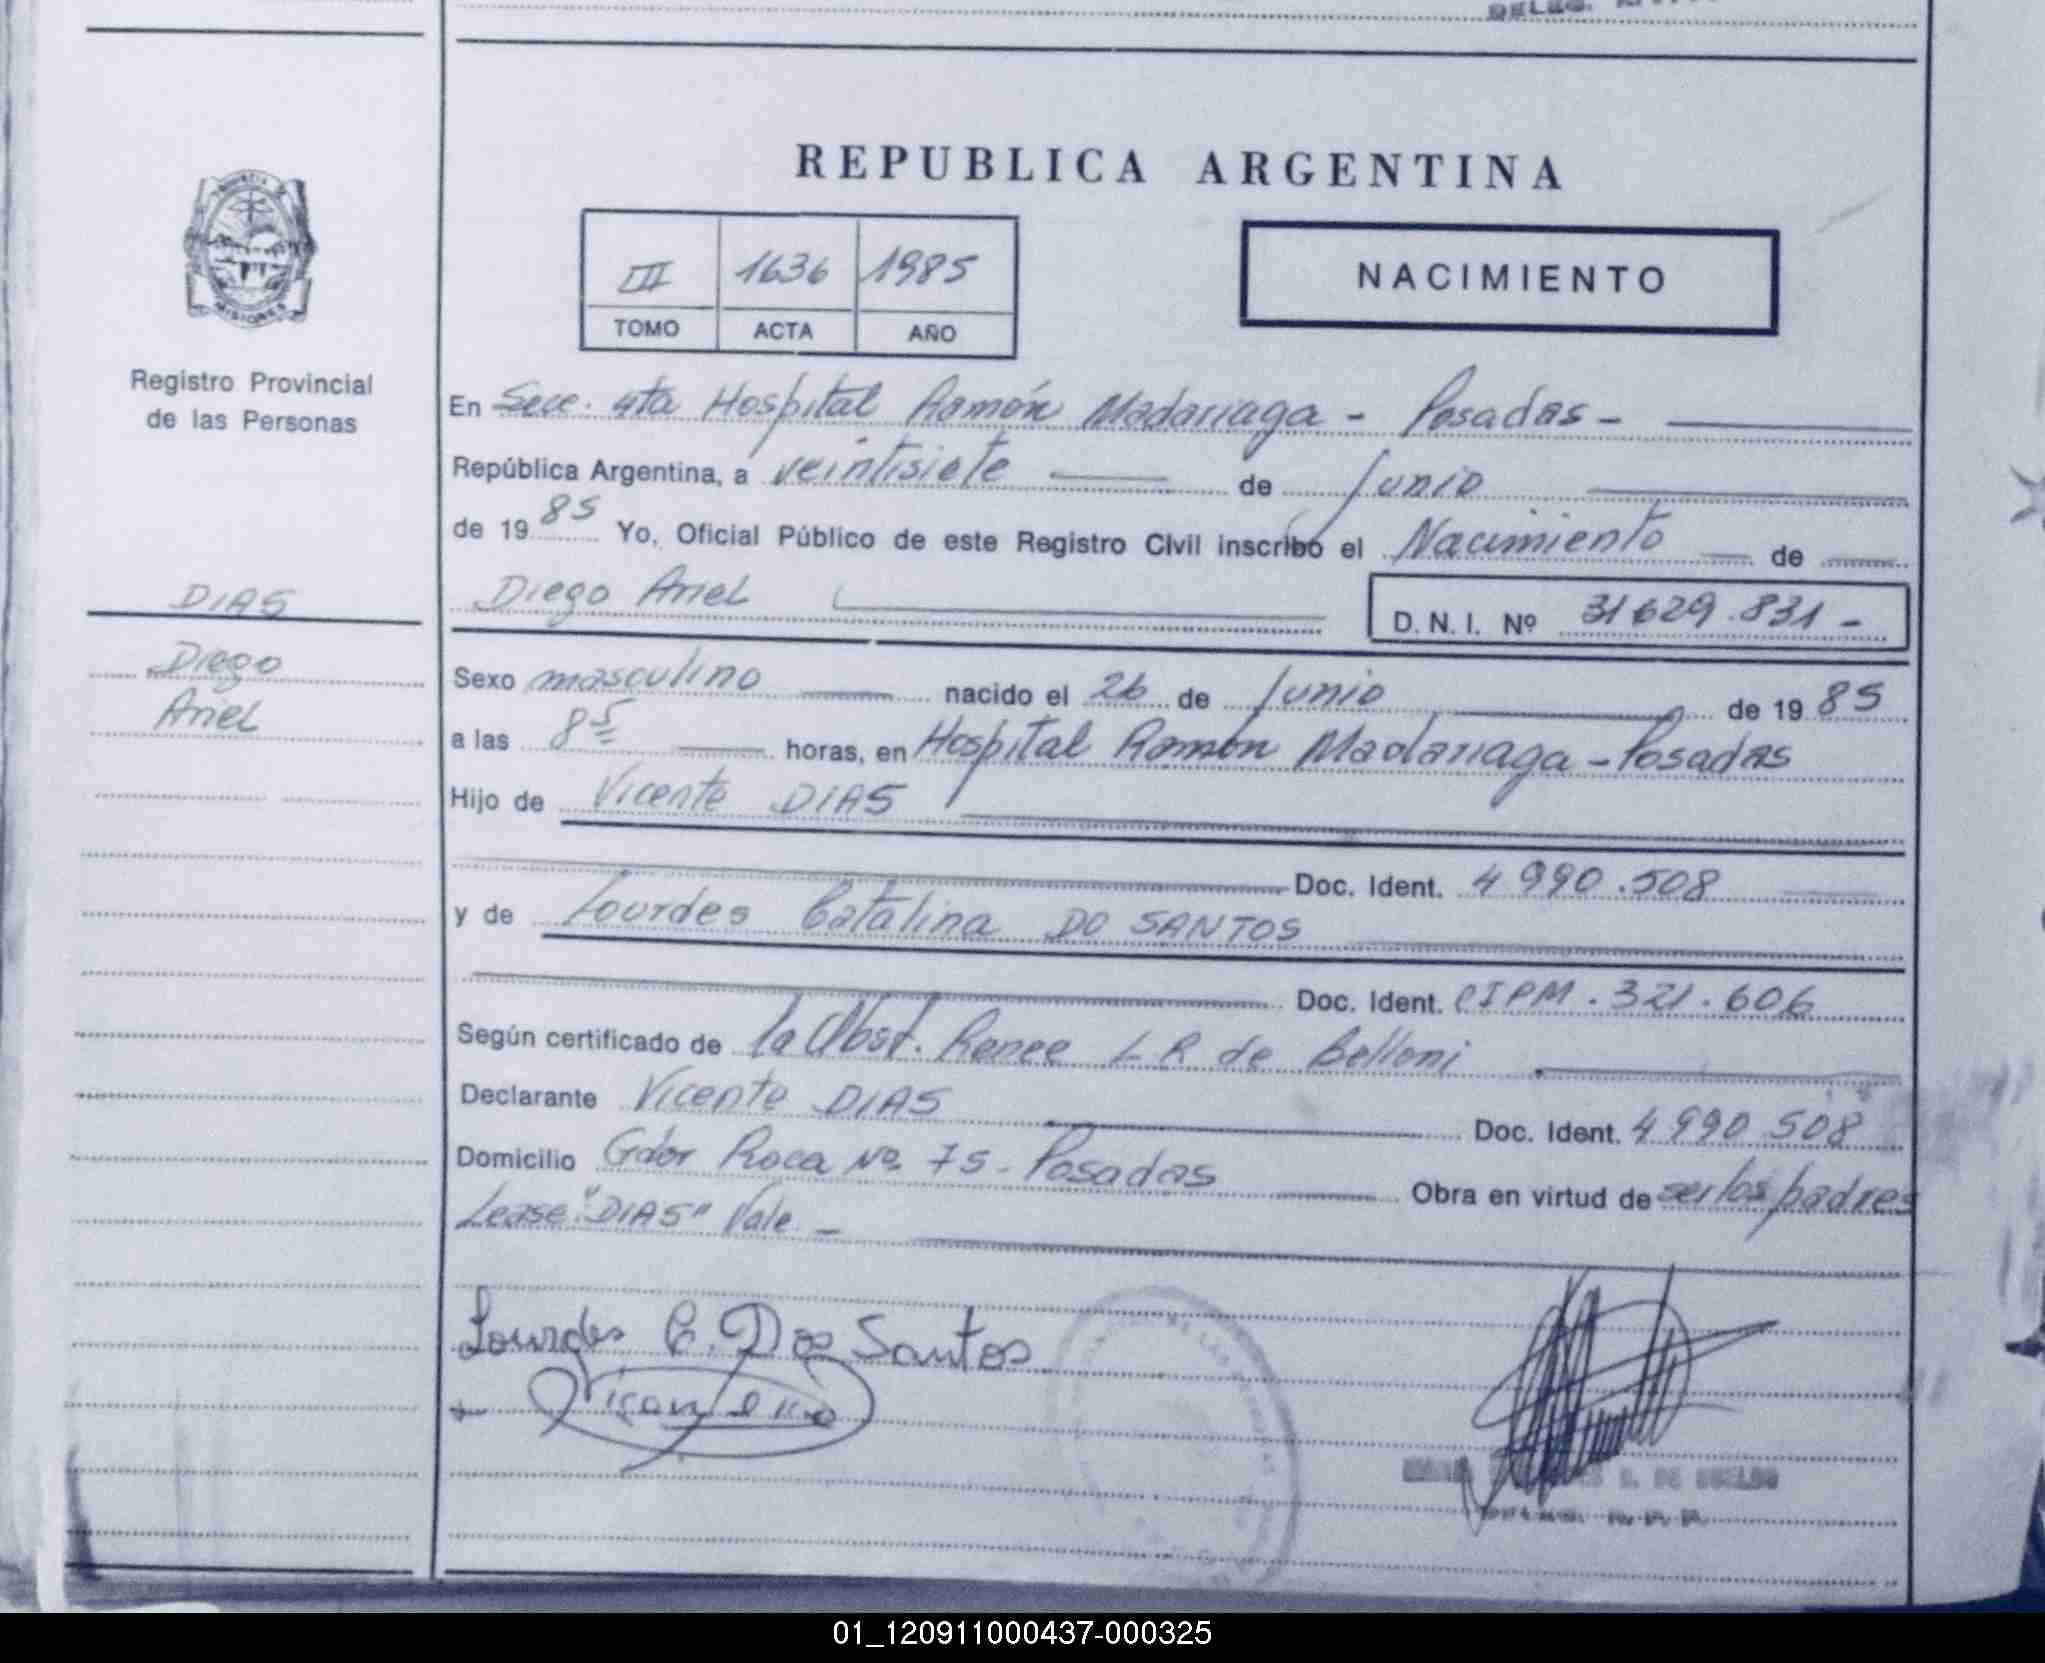 REPUBLICA ARGENTINA
III 1636 1985
TOMO ACTA AÑO
NACIMIENTO
MISIONES
Registro Provincial
de las Personas
DIAS
Diego
Ariel
En Secc. 4ta Hospital Ramón Madariaga - Posadas -
República Argentina, a veintisiete de Junio
de 19 85 Yo, Oficial Público de este Registro Civil inscribo el Nacimiento de
Diego Ariel D. N. I. Nº 31629.831 -
Sexo masculino nacido el 26 de Junio de 19 85
a las 8 5 horas, en Hospital Ramón Madariaga - Posadas
Hijo de Vicente DIAS
Doc. Ident. 4 990.508
y de Lourdes Catalina DO SANTOS
Doc. Ident. CIPM. 321.606
Según certificado de la Obst. Renee L R de Belloni
Declarante Vicente DIAS Doc. Ident. 4 990 508
Domicilio Gdor Roca Nº 75 - Posadas Obra en virtud de ser los padres
Lease "DIAS" Vale. -
Lourdes C. Dos Santos
01_120911000437-000325